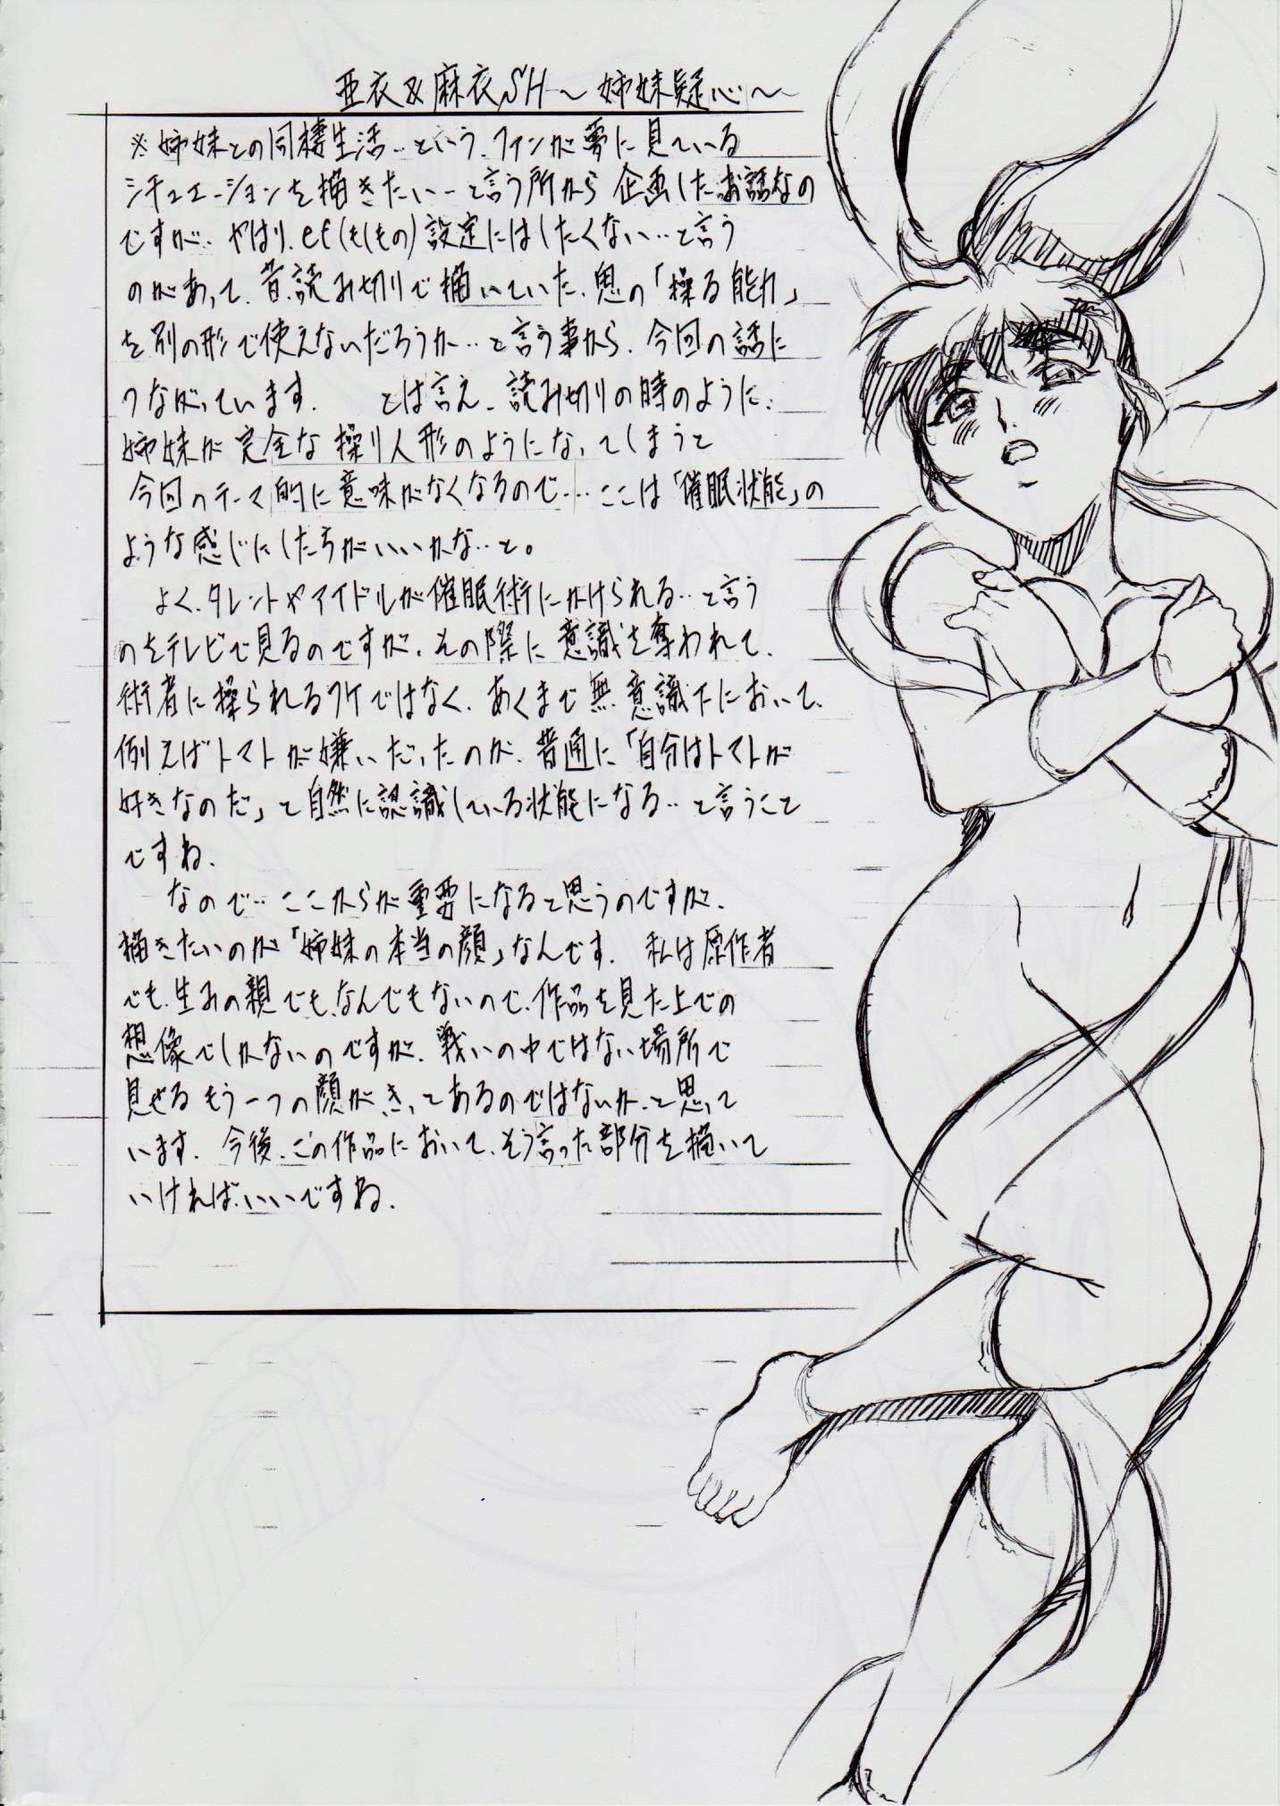 亜衣&麻衣SH〜姉妹疑心〜
※姉妹との同棲生活‥という、ファンが夢に見ている
シチュエーションを描きたい−と言う所から企画したお話なの
ですが‥やはり、ef(もしもの)設定にはしたくない‥と言う
のがあって、昔、読み切りで描いていた、鬼の「操る能力」
を別の形で使えないだろうか‥と言う事から、今回の話に
つながっています. とは言え、読み切りの時のように、
姉妹が完全な操り人形のようになってしまうと
今回のテーマ的に意味がなくなるので‥‥ここは「催眠状態」の
ような感じにした方がいいかな‥と。
よく、タレントやアイドルが催眠術にかけられる‥と言う
のをテレビで見るのですが、その際に意識を奪われて、
術者に操られるワケではなく、あくまで無意識下において、
例えばトマトが嫌いだったのが、普通に「自分はトマトが
好きなのだ」と自然に認識している状態になる‥と言うこと
ですね.
なので‥ここからが重要になると思うのですが、
描きたいのが「姉妹の本当の顔」なんです. 私は原作者
でも、生みの親でも、なんでもないので、作品を見た上での
想像でしかないのですが、戦いの中ではない場所で
見せるもう一つの顔がきっとあるのではないか、と思って
います. 今後、この作品において、そう言った部分を描いて
いければ、いいですね.